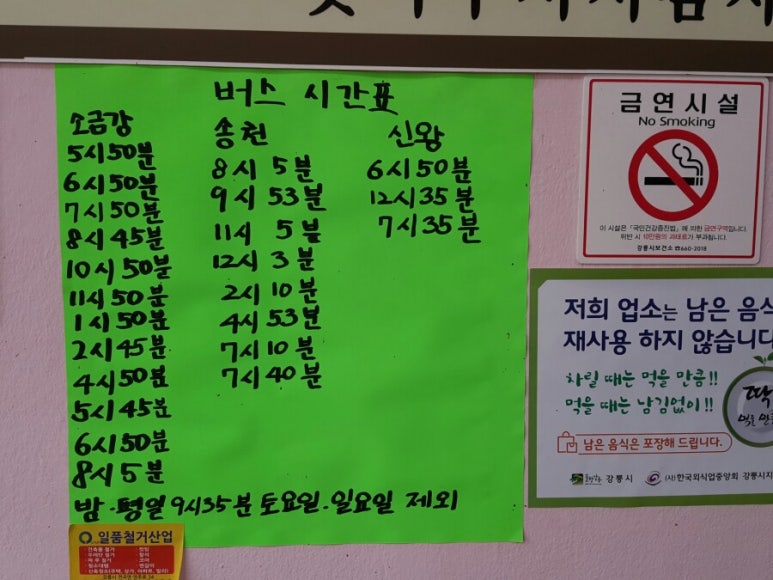 버스 시간표
소금강
5시 50분
6시 50분
7시 50분
8시 45분
10시 50분
11시 50분
1시 50분
2시 45분
4시 50분
5시 45분
6시 50분
8시 5분
송천
8시 5분
9시 53분
11시 5분
12시 3분
2시 10분
4시 53분
7시 10분
7시 40분
신왕
6시 50분
12시 35분
7시 35분
밤·평일 9시35분 토요일·일요일 제외
금연시설
No Smoking
이 시설은 「국민건강증진법」에 의한 금연구역입니다.
위반 시 10만원의 과태료가 부과됩니다.
강릉시보건소 ☎660-2018
저희 업소는 남은 음식
재사용 하지 않습니다
차릴 때는 먹을 만큼!!
먹을 때는 남김없이!!
딱
먹을 만큼
남은 음식은 포장해 드립니다.
강릉시 (사)한국외식업중앙회 강릉시지
일품철거산업